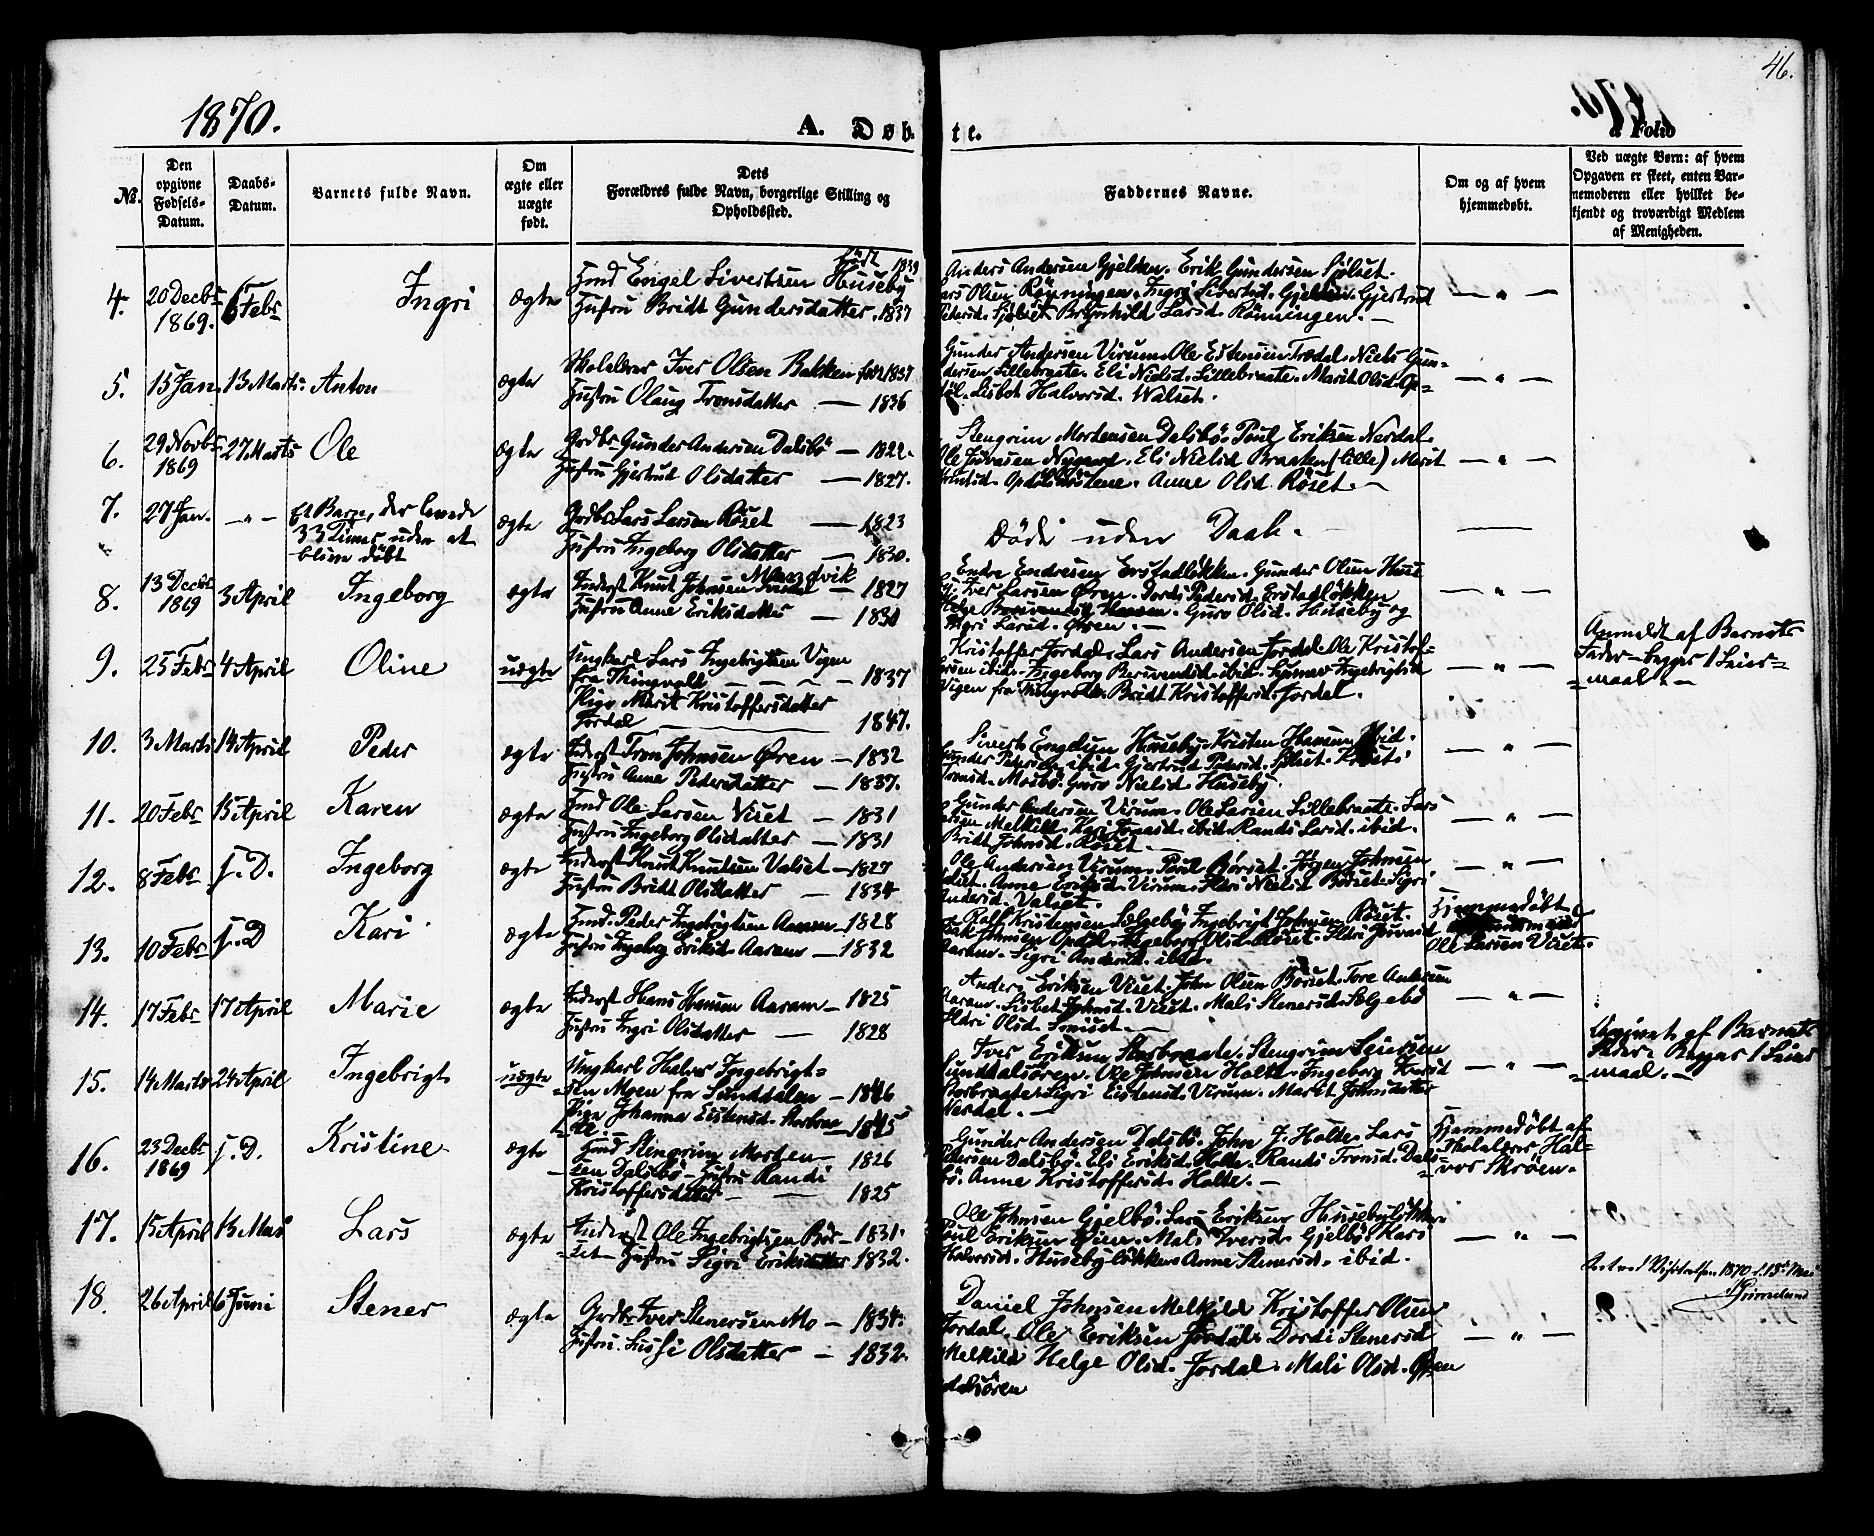 46.
1870.
A. Døbte.
a Folio
No.
Den opgivne Fødsels-Datum.
Daabs-Datum.
Barnets fulde Navn.
Om ægte eller uægte født.
Dets Forældres fulde Navn, borgerlige Stilling og Opholdssted.
Faddernes Navne.
Om og af hvem hjemmedøbt.
Ved uægte Børn: af hvem Opgaven er skeet, enten Barnemoderen eller hvilket bekjendt og troværdigt Medlem af Menigheden.
4. 20 Decbr 1869. 6 Febr Ingri ægte
født 1839
Engel Sivertsen Huseby
Hustru Bridt Gundersdatter. 1837
Anders Andersen Gjelden. Erik Gundersen Sjølset.
Lars Olsen Rønningen. Ingri Sivertsd. Gjelden. Gjertrud
Pedersd. Sjølset. Brynhild Larsd. Rønningen. —
5. 15 Jan. 13 Marts. Anton ægte
Skolelærer Iver Olsen Bakken født 1837
Hustru Olaug Tronsdatter — 1836
Gunder Andersen Virum. Ole Estensen Trædal. Niels Gun-
dersen Lillebraate. Eli Nielsd. Lillebraate. Marit Olsd. Op-
døl. Lisbet Halvorsd. Walset.
6. 29 Novbr 1869 27 Marts Ole ægte
Grdbr Gunder Andersen Dalsbø — 1822.
Hustru Gjertrud Olsdatter — 1827.
Stengrim Mortensen Dalsbø. Poul Eriksen Nerdal.
Eli Nielsd Braaten (Lille) Marit
Anne Olsd Røset. —
7. 27 Jan. — " — Et Barn, der levede
33 Timer uden at
blive døbt
ægte
Grdbr Lars Larsen Røset — 1823
Hustru Ingeborg Olsdatter — 1830.
Døde uden Daab.
8. 13 Decbr 1869 3 April Ingeborg ægte
Inderst Knut Johnsen — 1827
Hustru Anne Eriksdatter — 1830
Endre Endresen Erstadløkken. Gunder Olsen Huse
Iver Larsen Øren. Dordi Pedersd. Erstadløkken
Guro Olsd. Huseby og
Ingri Larsd. Øren. —
9. 25 Febr 4 April Oline uægte
Ungkarl Lars Ingebrigtsen Vigen
fra Thingvold — 1837
Pige Marit Kristoffersdatter
Jordal — 1847.
Kristoffer Jordal. Lars Andersen Jordal. Ole Kristof-
fersen ibid. Ingeborg
Vigen fra Thingvold. Bridt Kristoffersd. Jordal.
Anmeldt af Barnets
Fader — begges 1 Leier-
maal. —
10. 3 Marts 14 April Peder ægte
Inderst Tron Johnsen Øren — 1832
Hustru Anne Pedersdatter — 1837.
Sivert Engelsen Huseby. Kristen Hansen ibid.
Gunder Petersen ibid. Gjertrud Pedersd. Sjølset.
Tronsd. Mosbø. Guro Nielsd Huseby.
11. 20 Febr 15 April Karen ægte
Ole Larsen Viset — 1831
Hustru Ingeborg Olsdatter — 1831
Gunder Andersen Virum. Ole Larsen Lillebraate. Lars
Olsen Melkild. Kari Jonasd. ibid. Randi Larsd. ibid.
Bridt Johnsd. Røset —
12. 8 Febr s. D. Ingeborg ægte
Inderst Knut Knutsen Valset — 1827
Hustru Bridt Olsdatter — 1834
Ole Andersen Virum. Poul Børset. Jøgen Johnsen
Valset. Anne Eriksd. Virum. Ildri Nielsd Børset. Sigri
Andersd. Valset.
13. 10 Febr s. D Kari ægte
Peder Ingebrigtsen Aaram — 1828
Hustru Ingeborg Eriksd. Aaram — 1832
Rolf Kristensen Selgebø. Ingebrigt Johnsen Røset.
Erik Johnsen Opdøl. Ingeborg Olsd. Røset. Ildri Jonasd
Aaram. Sigri Andersd. ibid.
Hjemmedøbt
Ole Larsen Viset.
14. 17 Febr 17 April Marie ægte
Inderst Hans Hansen Aaram — 1825
Hustru Ingri Olsdatter — 1828
Anders Eriksen Viset. John Olsen Børset. Tore Andersen
Aaram. Lisbet Johnsd. Viset. Mali Stenersd. Selgebø
Ildri Olsd. —
15. 14 Marts 24 April Ingebrigt uægte
Ungkarl Halvor Ingebrigt-
sen Moen fra Sunddalen — 1846
Pige Johanna Eistensd. Storbraa-
te — 1845
Iver Eriksen Storbraate. Stengrim Leirsen
Sunddalsøren. Ole Johnsen Holte. Ingeborg Knutsd
Storbraate. Sigri Eistensd. Virum. Marit Johnsdatter
Nerdal. —
Opgivet af Barnets
Fader. Begges 1 Leier
maal. —
16. 23 Decbr 1869 s. D. Kristine ægte
Stengrim Morten-
sen Dalsbø — 1826
Hustru Randi
Kristoffersdatter — 1825
Gunder Andersen Dalsbø. John J. Holte. Lars
Petersen Dalsbø. Eli Eriksd. Holte. Randi Tronsd. Dals-
bø. Anne Kristoffersd. Holte. —
Hjemmedøbt af
Skolelærer Hal-
vor Skrøen.
17. 15 April 13 Mai Lars ægte
Inderst Ole Ingebrigtsen Bør- — 1831.
set. Hustru Sigri Eriksdatter 1832.
Ole Johnsen Gjelbø. Lars Eriksen Husebyløkken.
Poul Eriksen Øien. Mali Iversd. Gjelbø. Kari
Halvorsd. Husebyløkken. Anne Stenersd. ibid.
1870 d. 15de Mai
18. 26 April 6 Juni Stener ægte
Grdbr. Iver Stenersen Mo — 1834.
Hustru Lussi Olsdatter — 1832.
Daniel Johnsen Melkild. Kristoffer Olsen
Jordal. Ole Eriksen Jordal. Dordi Stenersd
Melkild. Helge Olsd. Jordal. Mali Olsd.